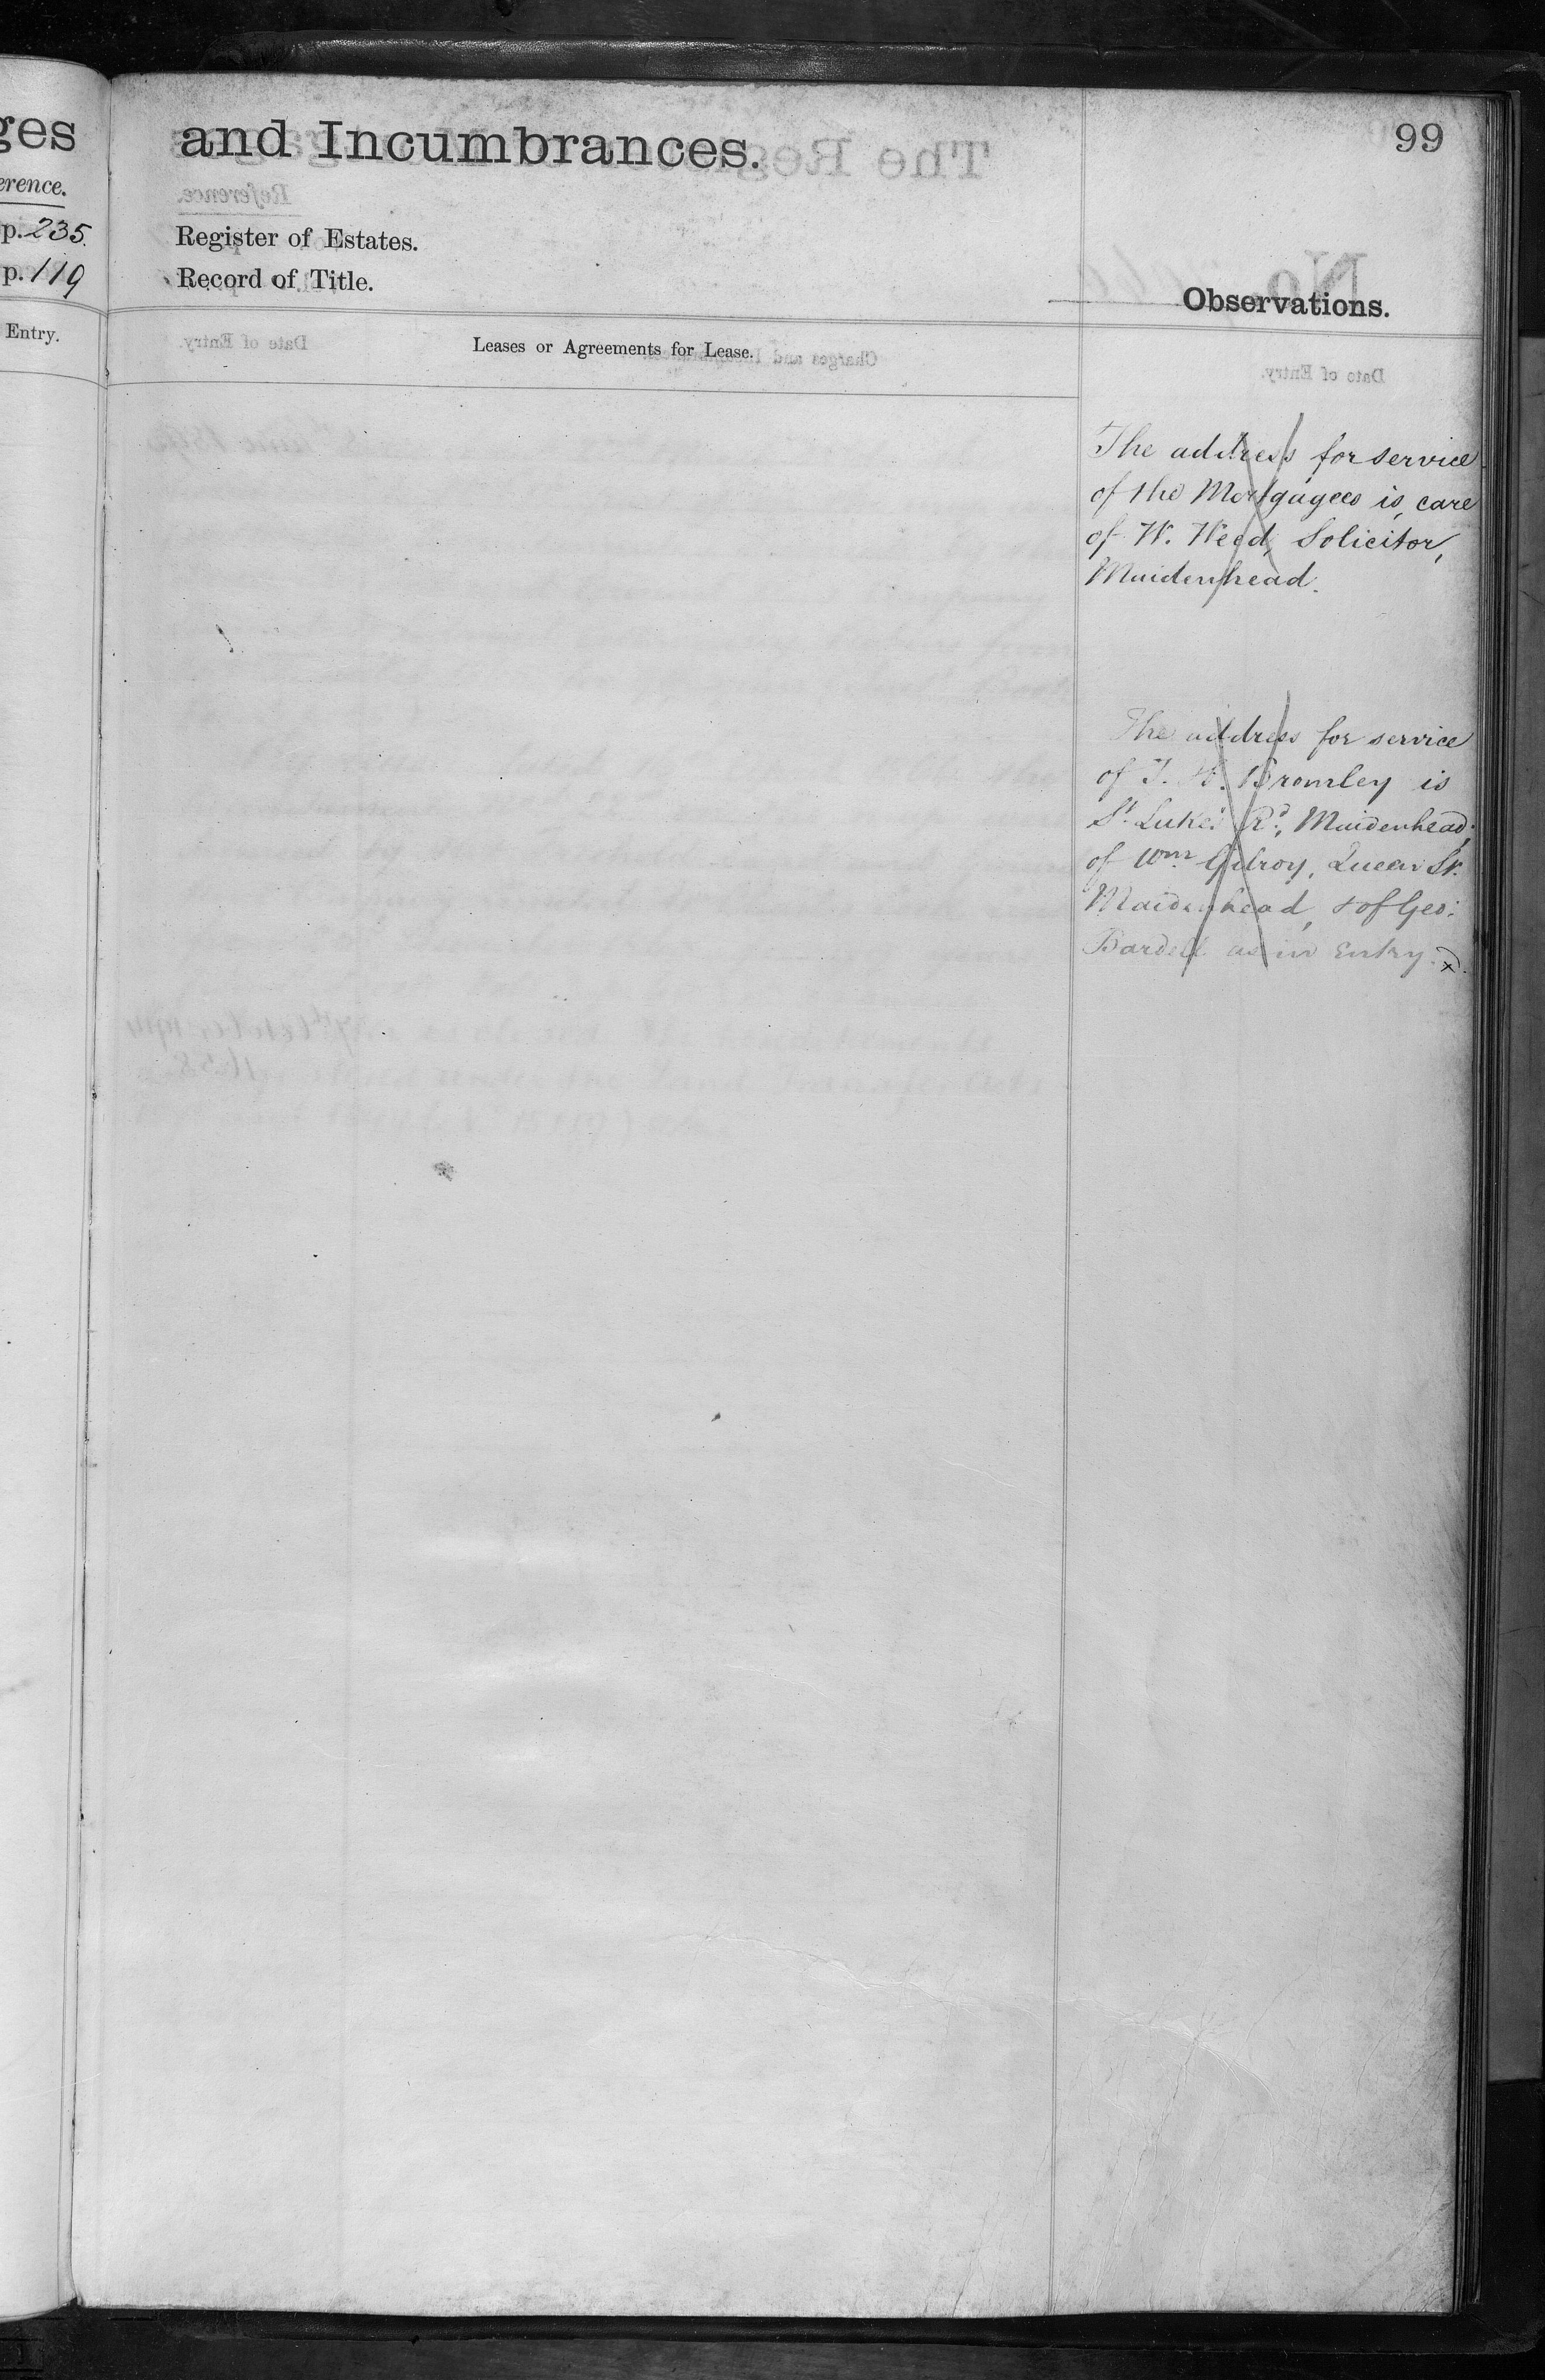 ges
erence.
p. 235.
p. 119
Entry.
and Incumbrances.
99
Register of Estates.
Record of Title.
Observations.
Leases or Agreements for Lease.
The address for service
of the Mortgagees is, care
of W. Weed, Solicitor,
Maidenhead.
The address for service
of J. W. Bromley is
St. Luke's Rd., Maidenhead;
of Wm. Gilroy, Queen St.
Maidenhead, & of Geo:
Bardell as in Entry.